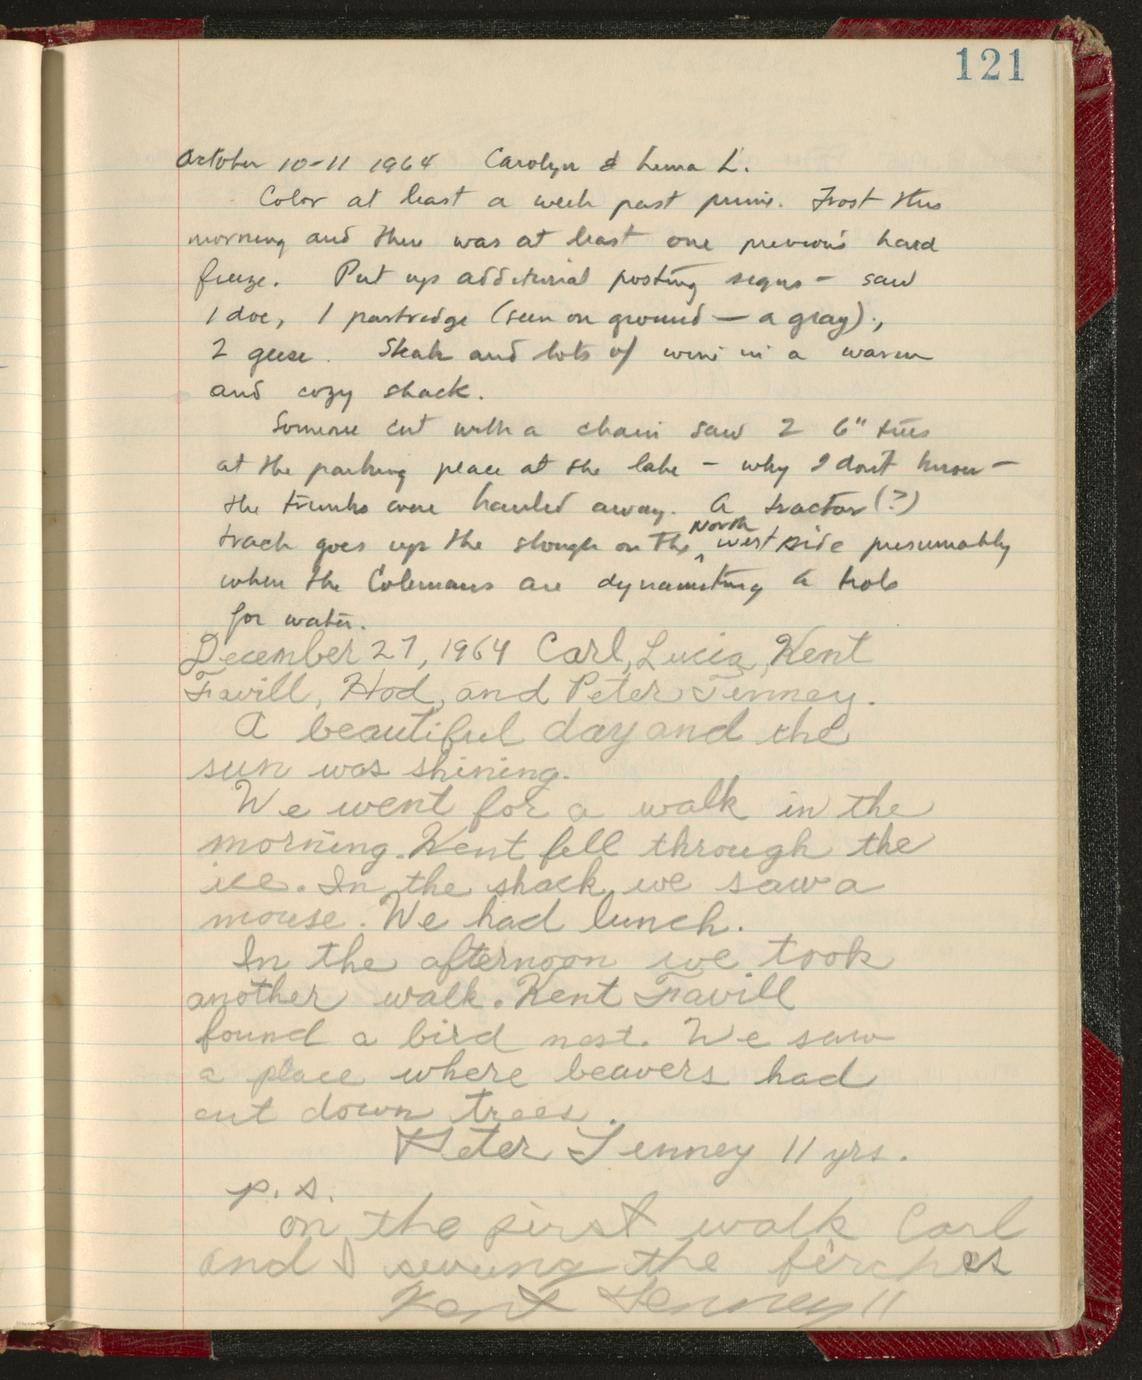 121
October 10-11 1964 Carolyn & Luna L.
Color at least a week past prime. Frost this
morning and there was at least one previous hard
freeze. Put up additional posting signs - saw
1 doe, 1 partridge (seen on ground — a gray),
2 geese. Steak and lots of wine in a warm
and cozy shack.
Someone cut with a chain saw 2 6" trees
at the parking place at the lake - why I don't know -
the trunks were hauled away. A tractor (?)
track goes up the slough on the North west side presumably
when the Colemans are dynamiting a hole
for water.
December 27, 1964 Carl, Lucia, Kent
Favill, Hod, and Peter Tenney.
A beautiful day and the
sun was shining.
We went for a walk in the
morning. Kent fell through the
ice. In the shack we saw a
mouse. We had lunch.
In the afternoon we took
another walk. Kent Favill
found a bird nest. We saw
a place where beavers had
cut down trees.
Peter Tenney 11 yrs.
p.s.
on the first walk Carl
and I swung the birches
Kent Tenney 11